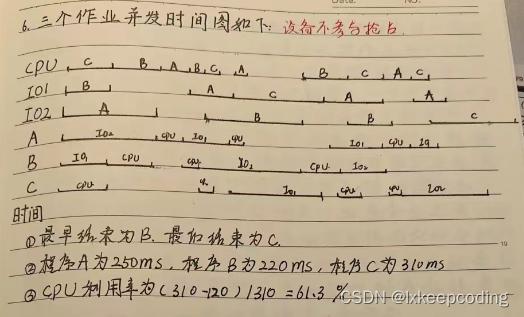 6. 三个作业并发时间图如下: 设备不考虑抢占.
CPU C B A B C A B C A C
IO1 B A C A A
IO2 A B B C
A IO2 CPU IO1 CPU IO1 CPU IO1
B IO1 CPU CPU IO2 CPU IO2
C CPU IO1 CPU CPU IO2
时间
① 最早结束为B. 最后结束为C.
② 程序A为250ms, 程序B为220ms, 程序C为310ms
③ CPU利用率为(310-120)/310=61.3%
CSDN @lxkeepcoding